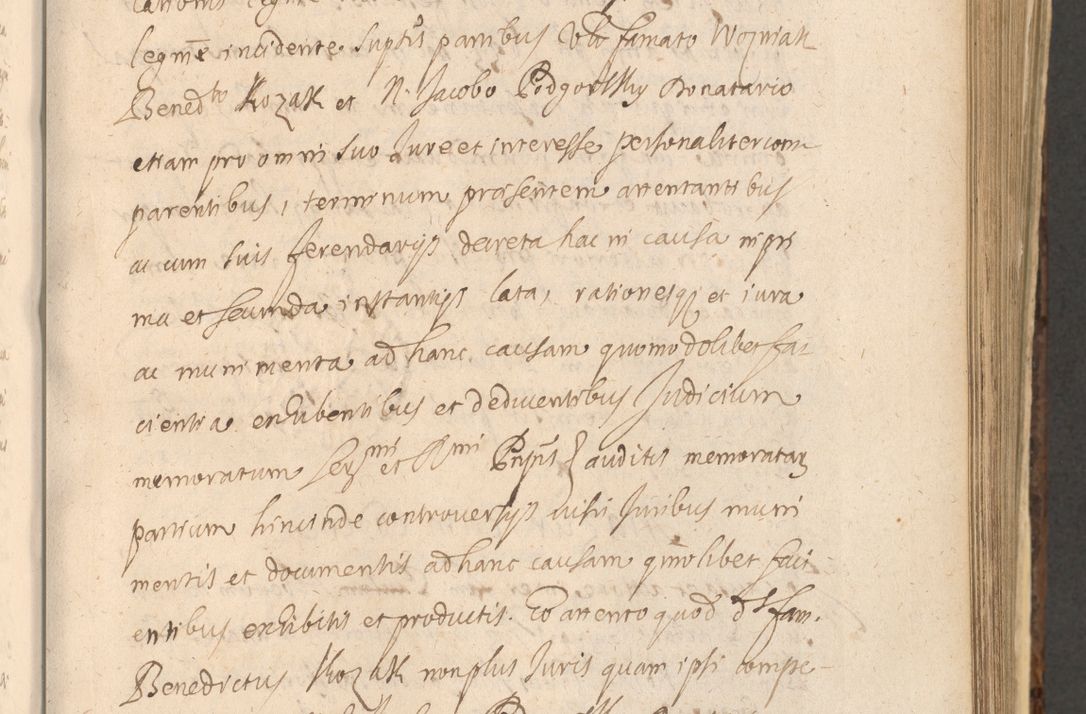 legitime incidente suptis partibus Vtt famato Wozniak
Benedto Kozak et N. Jacobo Podgorsky Donatario
etiam pro omni suo Jure et interesse personaliter com
parentibus, terminum praesentem attentantibus
ac cum suis ferendarijs decreta hac in causa in pri
ma et secunda instantijs lata, rationesq et iura
ac munimenta ad hanc causam quomodolibet fa
cientia exhibentibus et deducentibus Judicium
memoratum Sermi et Rmi Pnpis auditis memoratar
partium hincinde controversijs visis Juribus muni
mentis et documentis ad hanc causam qmolibet faci
entibus exhibitis et productis. Eo attento quod ds fam.
Benedictus Kozak non plus Juris quam ipsi compe-